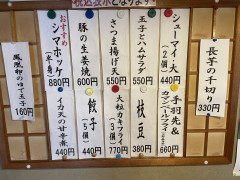 税込表示となります
シューマイ・大
(2個)
440円
玉子とハムサラダ
550円
さつま揚げ天
550円
豚の生姜焼
600円
おすすめ
シマホッケ
(半身)
880円
長芋の千切り
330円
手羽先&
(2個)
660円
枝豆
380円
大粒カキフライ
(3個)
770円
餃子
(5個)
440円
イカ天の甘辛煮
440円
160円